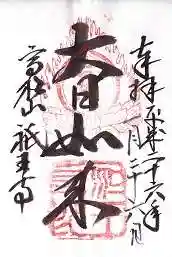 奉拝 平成二十六年
一月二十六日
大日如来
高松山 祇王寺